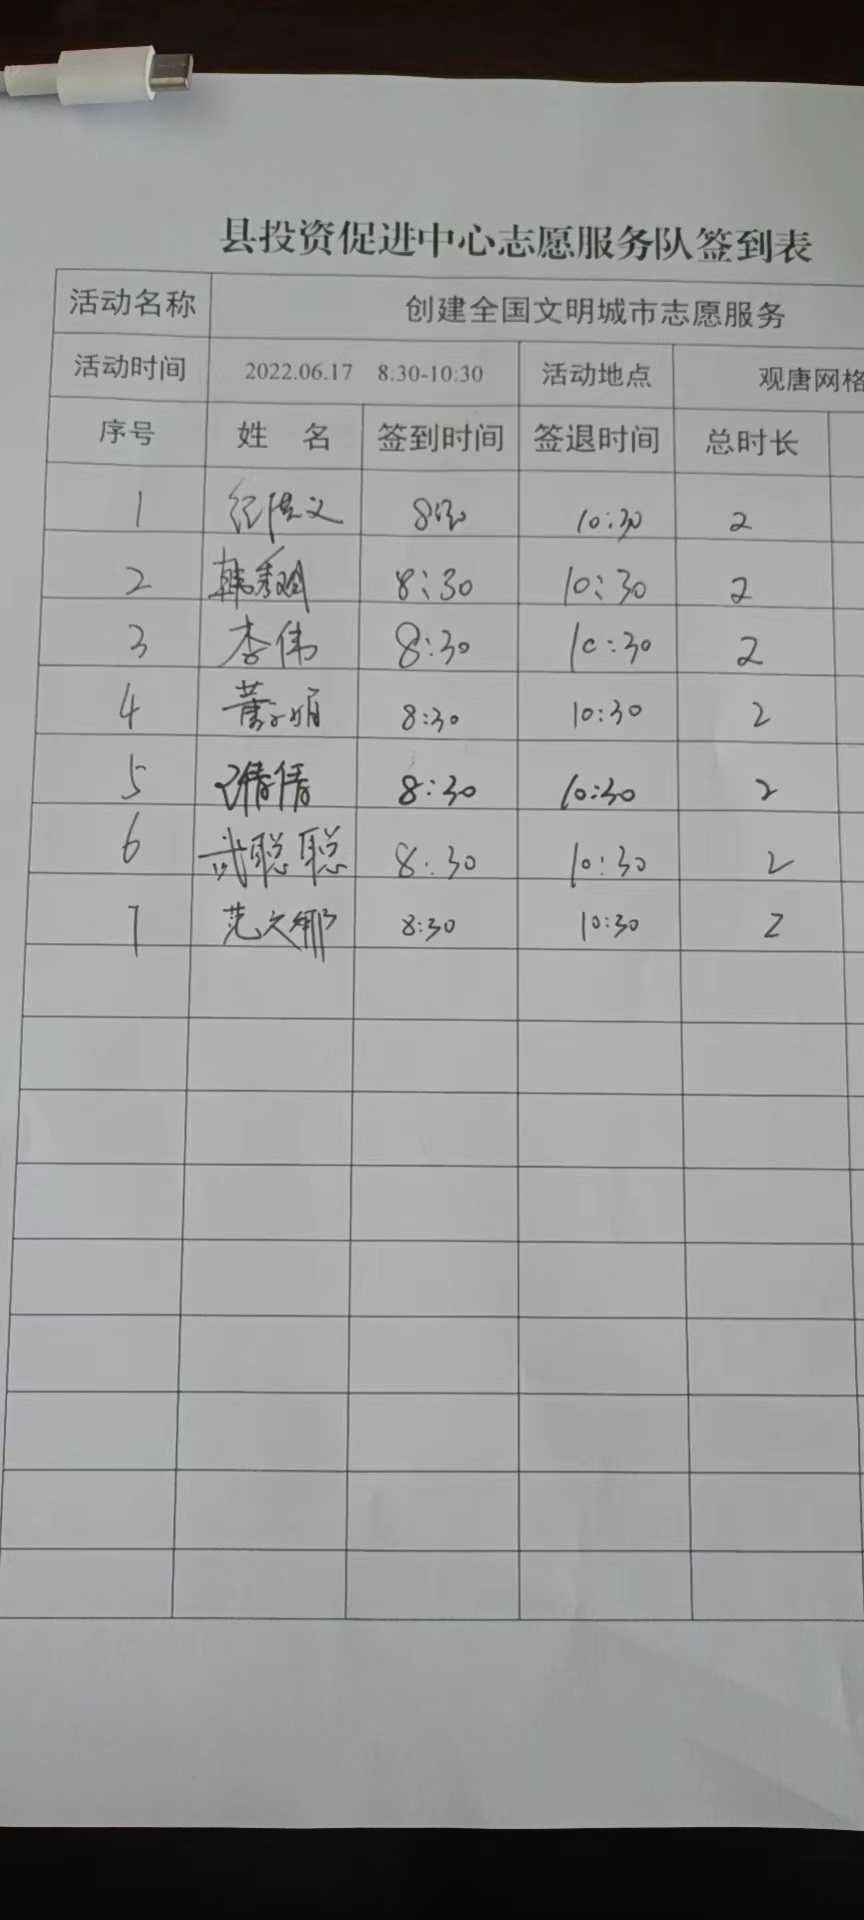 县投资促进中心志愿服务队签到表
活动名称 创建全国文明城市志愿服务
活动时间 2022.06.17 8:30-10:30 活动地点 观唐网格
序号 姓 名 签到时间 签退时间 总时长
1 8:30 10:30 2
2 韩秀 8:30 10:30 2
3 李伟 8:30 10:30 2
4 8:30 10:30 2
5 倩倩 8:30 10:30 2
6 武聪聪 8:30 10:30 2
7 范文 8:30 10:30 2